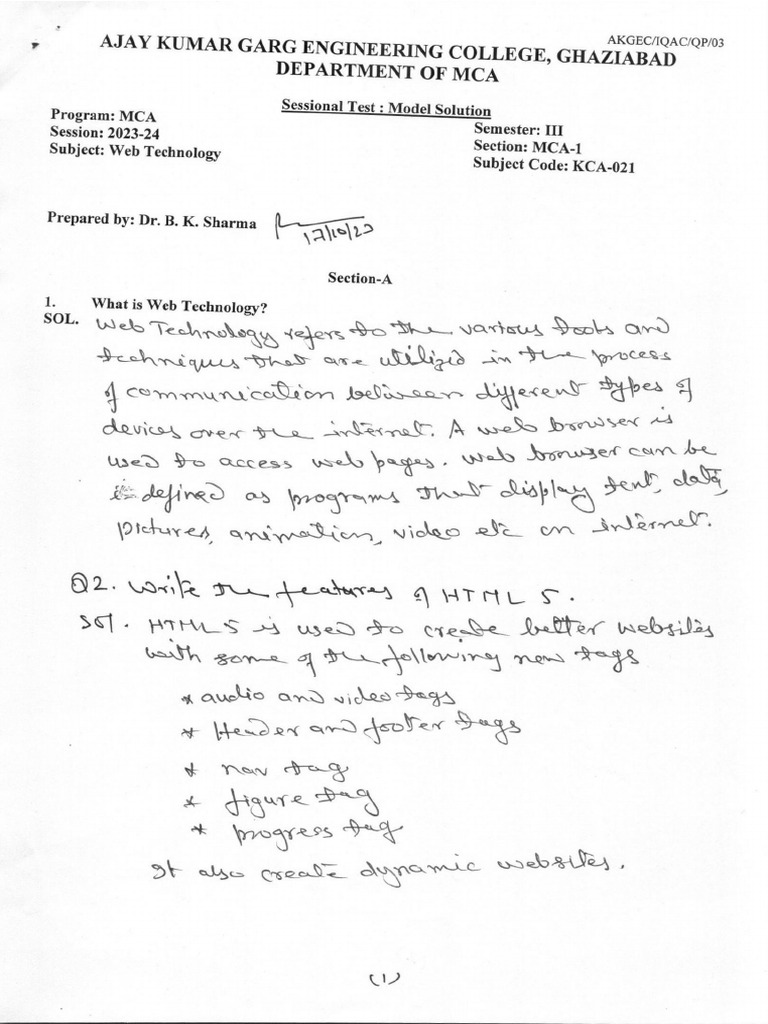 AKGEC/IQAC/QP/03
AJAY KUMAR GARG ENGINEERING COLLEGE, GHAZIABAD
DEPARTMENT OF MCA
Sessional Test : Model Solution
Program: MCA
Semester: III
Session: 2023-24
Section: MCA-1
Subject: Web Technology
Subject Code: KCA-021
Prepared by: Dr. B. K. Sharma
17/10/23
Section-A
1. What is Web Technology?
SOL. Web Technology refers to the various tools and
techniques that are utilized in the process
of communication between different types of
devices over the internet. A web browser is
used to access web pages. Web browser can be
defined as programs that display text, data,
pictures, animation, video etc on internet.
Q2. Write the features of HTML 5.
Sol. HTML 5 is used to create better websites
with some of the following new tags
* audio and video tags
* Header and footer tags
* nav tag
* figure tag
* progress tag
It also create dynamic websites.
(1)